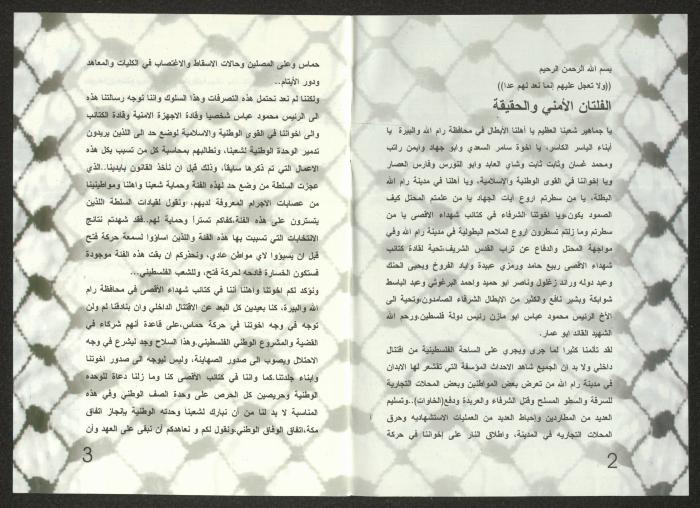 بسم الله الرحمن الرحيم
((ولا تعجل عليهم إنما نعد لهم عدا))
الفلتان الأمني والحقيقة
يا جماهير شعبنا العظيم يا أهلنا الأبطال في محافظة رام الله والبيرة يا
أبناء الياسر الكاسر، يا اخوة سامر السعدي وابو جهاد وايمن راتب
ومحمد غسان وثابت ثابت وشاي العابد وابو النورس وفارس العصار
ويا إخواننا في القوى الوطنية والاسلامية، ويا أهلنا في مدينة رام الله
البطلة، يا من سطرتم اروع آيات الجهاد يا من علمتم المحتل كيف
الصمود يكون.ويا اخوتنا الشرفاء في كتائب شهداء الاقصى يا من
سطرتم وما زلتم تسطرون اروع الملاحم البطولية في مدينة رام الله وفي
مواجهة المحتل والدفاع عن تراب القدس الشريف،تحية لقادة كتائب
شهداء الأقصى ربيع حامد ورمزي عبيدة واياد الفروخ ويحيى الحنك
وعبد دوله ورائد زغلول وناصر ابو حميد واحمد البرغوثي وعبد الباسط
شوابكة وبشير نافع والكثير من الابطال الشرفاء الصامدون.وتحية الى
الأخ الرئيس محمود عباس ابو مازن رئيس دولة فلسطين.ورحم الله
الشهيد القائد ابو عمار.
لقد تألمنا كثيرا لما جرى ويجري على الساحة الفلسطينية من اقتتال
داخلي ولا بد ان الجميع شاهد الاحداث المؤسفة التي تقشعر لها الابدان
في مدينة رام الله من تعرض بعض المواطنين وبعض المحلات التجارية
للسرقة والسطو المسلح وقتل الشرفاء والعربدة ودفع(الخاوات)..وتسليم
العديد من المطاردين وإحباط العديد من العمليات الاستشهاديه وحرق
المحلات التجاريه في المدينة، واطلاق النار على إخواننا في حركة
2
حماس وعلى المصلين وحالات الاسقاط والاغتصاب في الكليات والمعاهد
ودور الأيتام..
ولكننا لم نعد نحتمل هذه التصرفات وهذا السلوك واننا نوجه رسالتنا هذه
الى الرئيس محمود عباس شخصيا وقادة الاجهزة الامنية وقادة الكتائب
والى اخواننا في القوى الوطنية والاسلامية لوضع حد الى اللذين يريدون
تدمير الوحدة الوطنية لشعبنا، ونطالبهم بمحاسبة كل من تسبب بكل هذه
الاعمال التي تم ذكرها سابقا، وذلك قبل ان نأخذ القانون بأيدينا..الذي
عجزت السلطة من وضع حد لهذه الفئة وحماية شعبنا واهلنا ومواطنينا
من عصابات الاجرام المعروفة لديهم، ونقول لقيادات السلطة اللذين
يتسترون على هذه الفئة،كفاكم تسترأ وحماية لهم..فقد شهدتم نتائج
الانتخابات التي تسببت بها هذه الفئة واللذين اساؤوا لسمعة حركة فتح
قبل ان يسيؤوا لاي مواطن عادي، ونحذركم ان بقت هذه الفئة موجودة
فستكون الخسارة فادحه لحركة فتح، وللشعب الفلسطيني...
ونؤكد لكم اخوتنا واهلنا أننا في كتائب شهداء الأقصى في محافظة رام
الله والبيرة، كنا بعيدين كل البعد عن الاقتتال الداخلي وان بنادقنا لم ولن
توجه في وجه اخوتنا في حركة حماس،على قاعدة أنهم شركاء في
القضية والمشروع الوطني الفلسطيني.وهذا السلاح وجد ليشرع في وجه
الاحتلال ويصوب الى صدور الصهاينة، وليس ليوجه الى صدور اخوتنا
وابناء جلدتنا.كما واننا في كتائب الأقصى كنا وما زلنا دعاة للوحده
الوطنية وحريصين كل الحرص على وحدة الصف الوطني وفي هذه
المناسبة لا بد لنا من أن نبارك لشعبنا وحدته الوطنية بإنجاز اتفاق
مكة،اتفاق الوفاق الوطني.ونقول لكم و نعاهدكم أن نبقى على العهد وأن
3